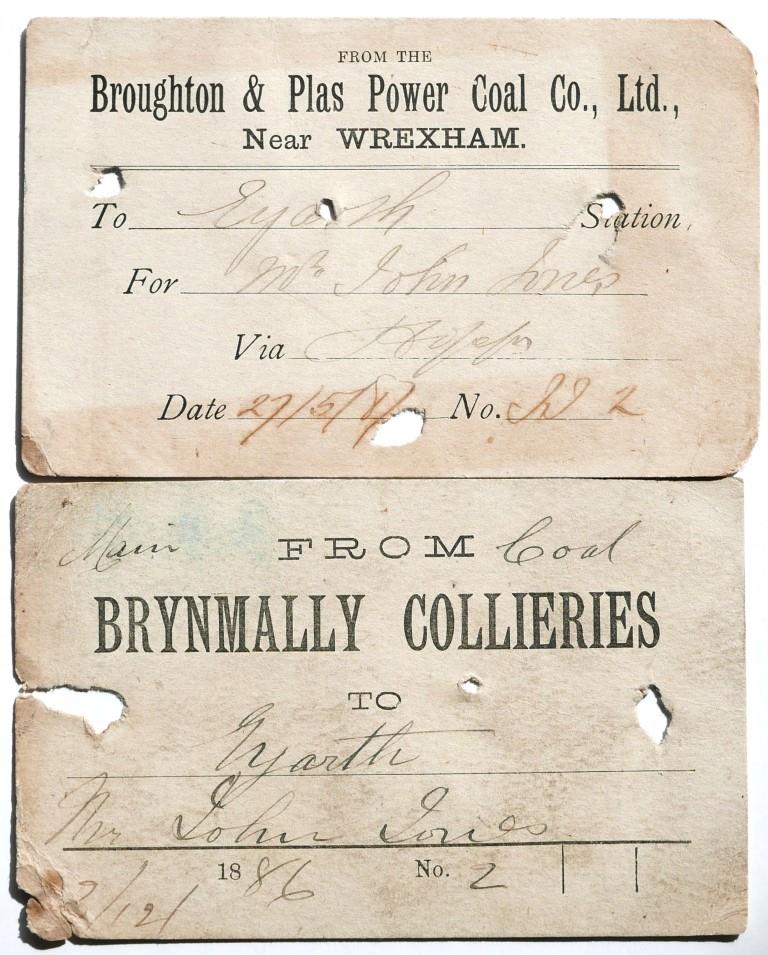 FROM THE
Broughton & Plas Power Coal Co., Ltd.,
Near WREXHAM.
To Eyarth Station,
For Mr John Jones
Via Hope
Date 27/5/ No. 2
Main FROM Coal
BRYNMALLY COLLIERIES
TO
Eyarth
Mr John Jones
2/12/ 1886 No. 2